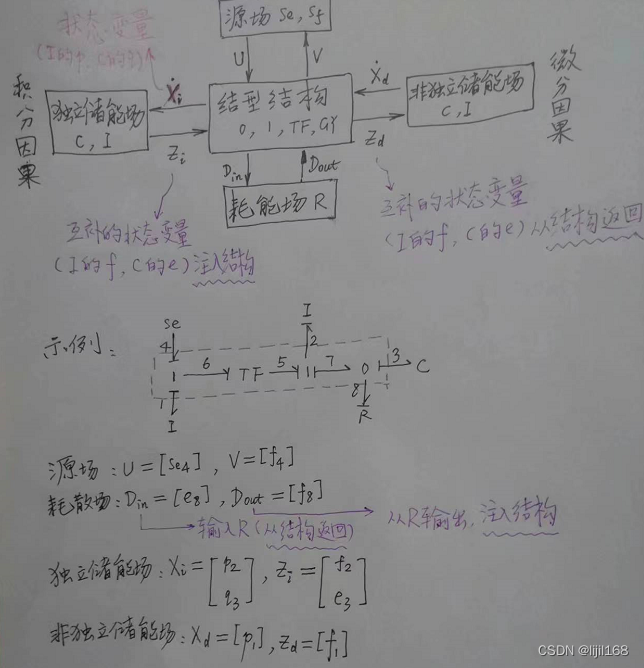 状态变量
(I的p, C的q)
源场 Se, Sf
U
V
积分因果
独立储能场
C, I
Ẋi
Zi
结型结构
0, 1, TF, GY
Ẋd
Zd
非独立储能场
C, I
微分因果
Din
Dout
耗能场 R
互补的状态变量
(I的f, C的e) 注入结构
互补的状态变量
(I的f, C的e) 从结构返回
示例:
Se
4
I
2
1
6
TF
5
1
7
0
3
C
1
I
8
R
源场: U=[Se4], V=[f4]
耗散场: Din=[e8], Dout=[f8]
输入R (从结构返回)
从R输出, 注入结构
独立储能场: Xi=[p2 q3], Zi=[f2 e3]
非独立储能场: Xd=[p1], Zd=[f1]
CSDN @lijil168